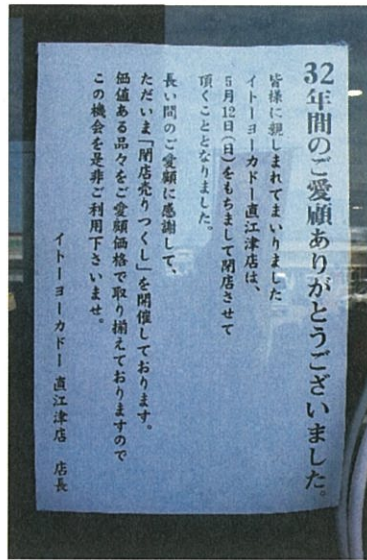 32年間のご愛顧ありがとうございました。
皆様に親しまれてまいりました
イトーヨーカドー直江津店は、
5月12日(日)をもちまして閉店させて
頂くこととなりました。
長い間のご愛顧に感謝して、
ただいま「閉店売りつくし」を開催しております。
価値ある品々をご愛顧価格で取り揃えておりますので
この機会を是非ご利用下さいませ。
イトーヨーカドー 直江津店 店長